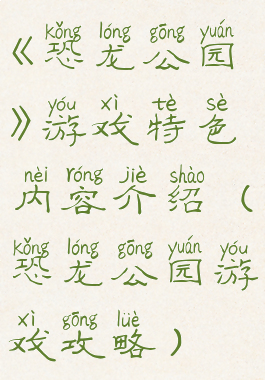 kǒng lóng gōng yuán
《恐龙公园
yóu xì tè sè
》游戏特色
nèi róng jiè shào
内容介绍（
kǒng lóng gōng yuán yóu
恐龙公园游
xì gōng lüè
戏攻略）